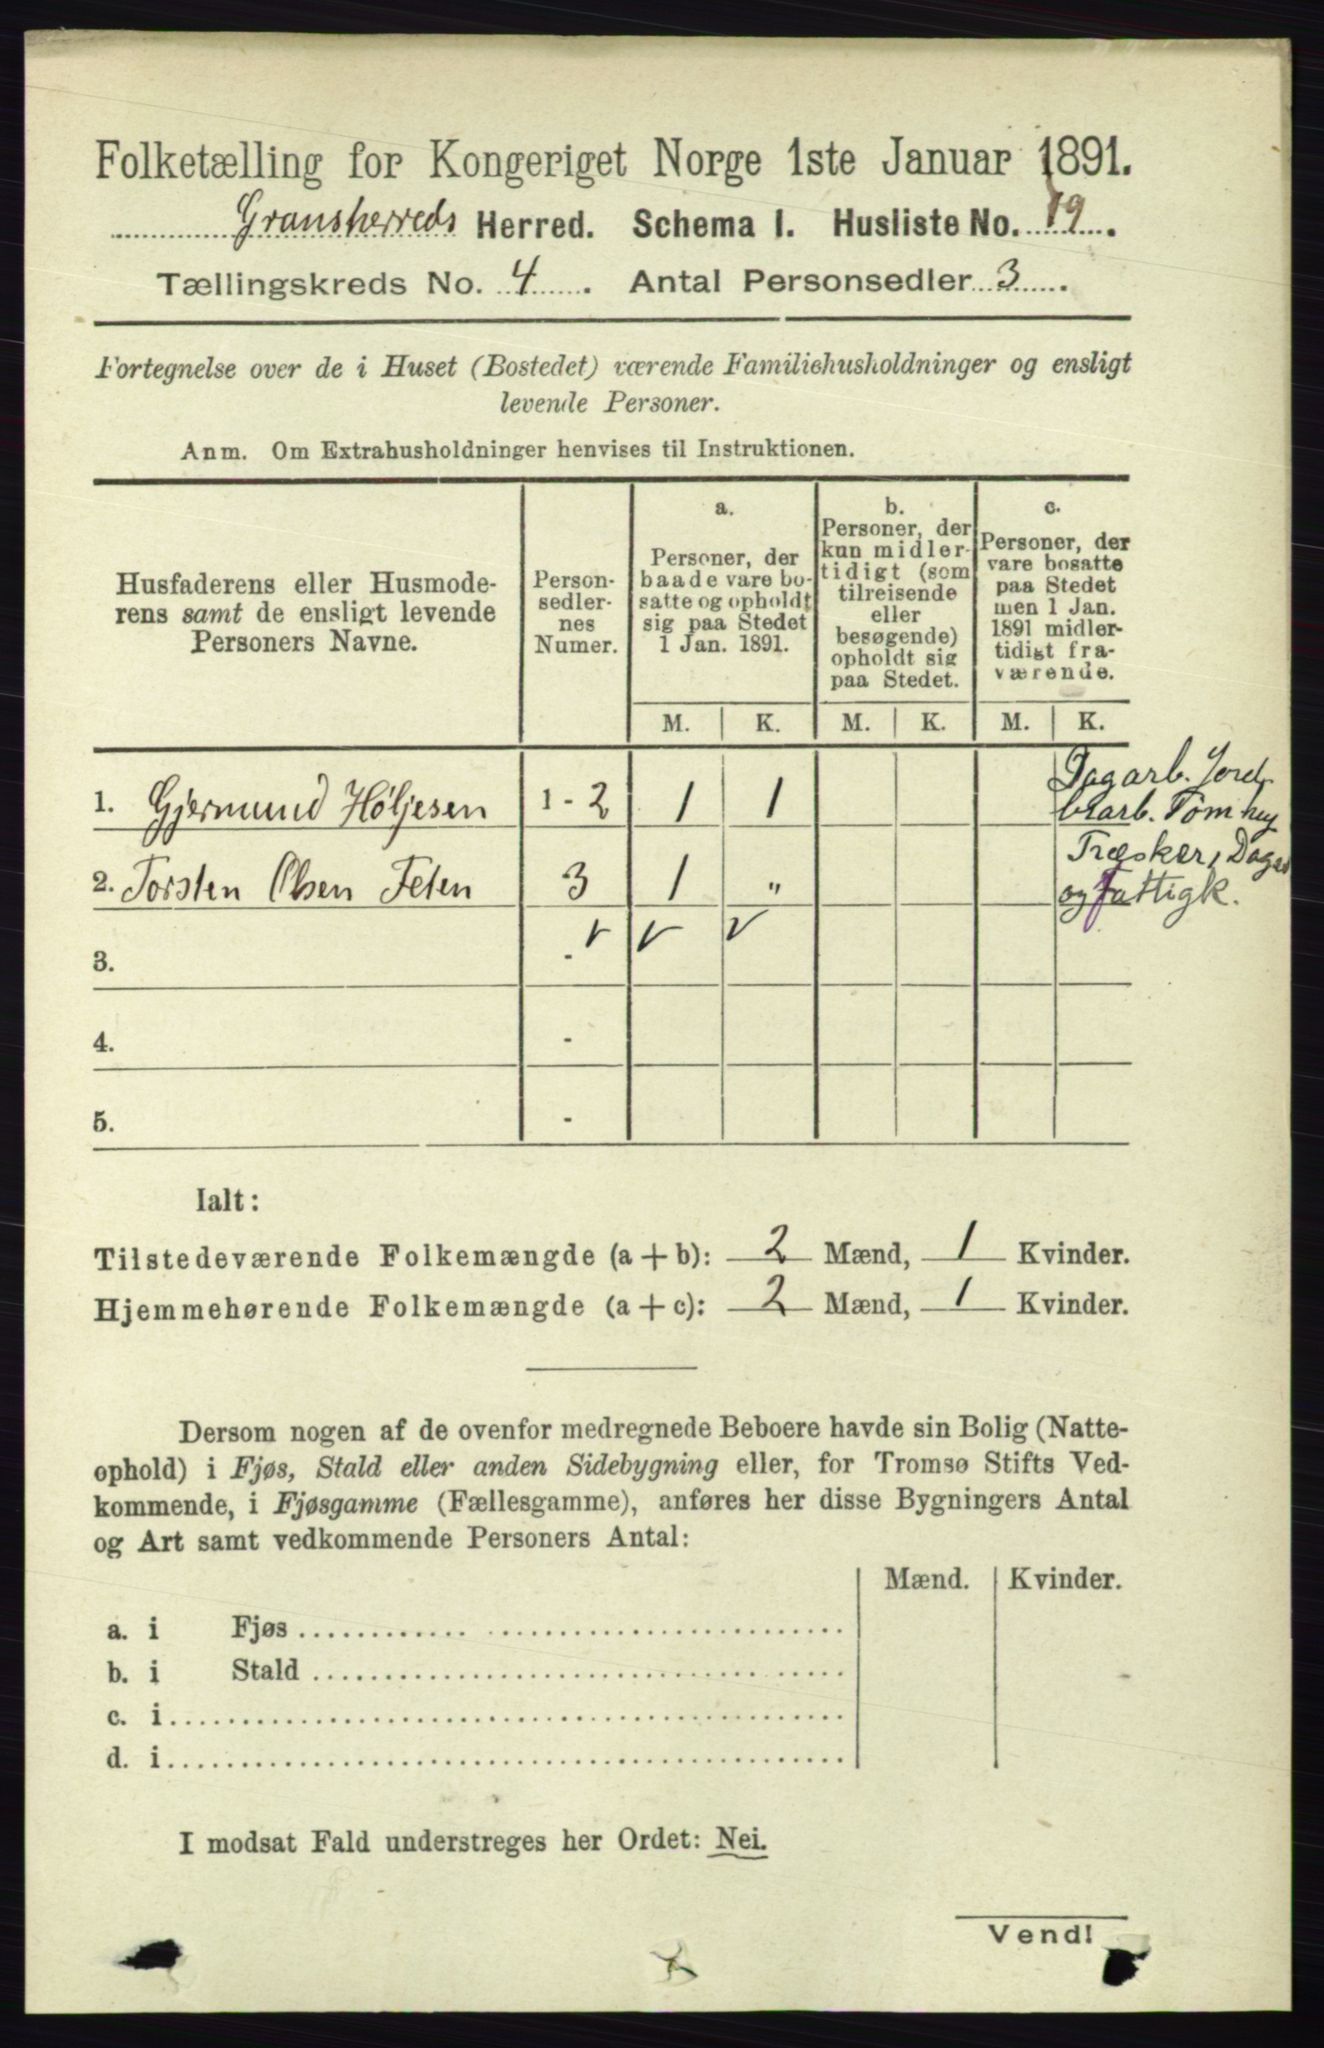 Folketælling for Kongeriget Norge 1ste Januar 1891.
Gransherreds Herred. Schema I. Husliste No. 19.
Tællingskreds No. 4. Antal Personsedler 3.
Fortegnelse over de i Huset (Bostedet) værende Familiehusholdninger og ensligt
levende Personer.
Anm. Om Extrahusholdninger henvises til Instruktionen.
Husfaderens eller Husmode-
rens samt de ensligt levende
Personers Navne.
Person-
sedler-
nes
Numer.
a.
Personer, der
baade vare bo-
satte og opholdt
sig paa Stedet
1 Jan. 1891.
b.
Personer, der
kun midler-
tidigt (som
tilreisende
eller
besøgende)
opholdt sig
paa Stedet.
c.
Personer, der
vare bosatte
paa Stedet
men 1 Jan.
1891 midler-
tidigt fra-
værende.
M. K. M. K. M. K.
1. Gjermund Höljesen 1 - 2 1 1
Dagarb. Jord,
Tømhug
2. Torsten Olsen Feten 3 1 "
Træsker, Daga
og Fattigk.
3. -
4. -
5. -
Ialt:
Tilstedeværende Folkemængde (a + b): 2 Mænd, 1 Kvinder.
Hjemmehørende Folkemængde (a + c): 2 Mænd, 1 Kvinder.
Dersom nogen af de ovenfor medregnede Beboere havde sin Bolig (Natte-
ophold) i Fjøs, Stald eller anden Sidebygning eller, for Tromsø Stifts Ved-
kommende, i Fjøsgamme (Fællesgamme), anføres her disse Bygningers Antal
og Art samt vedkommende Personers Antal:
Mænd. Kvinder.
a. i Fjøs
b. i Stald
c. i
d. i
I modsat Fald understreges her Ordet: Nei.
Vend!